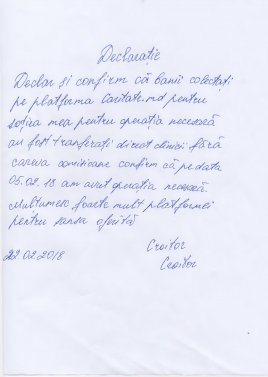 Declarație
Declar și confirm că banii colectați
pe platforma Caritate.md pentru
soția mea pentru operația necesară
au fost transferați direct clinicii fără
careva comisioane confirm că pe data
05.02.18 am avut operația necesară
Mulțumesc foarte mult platformei
pentru șansa oferită
Croitor
22.02.2018
Croitor